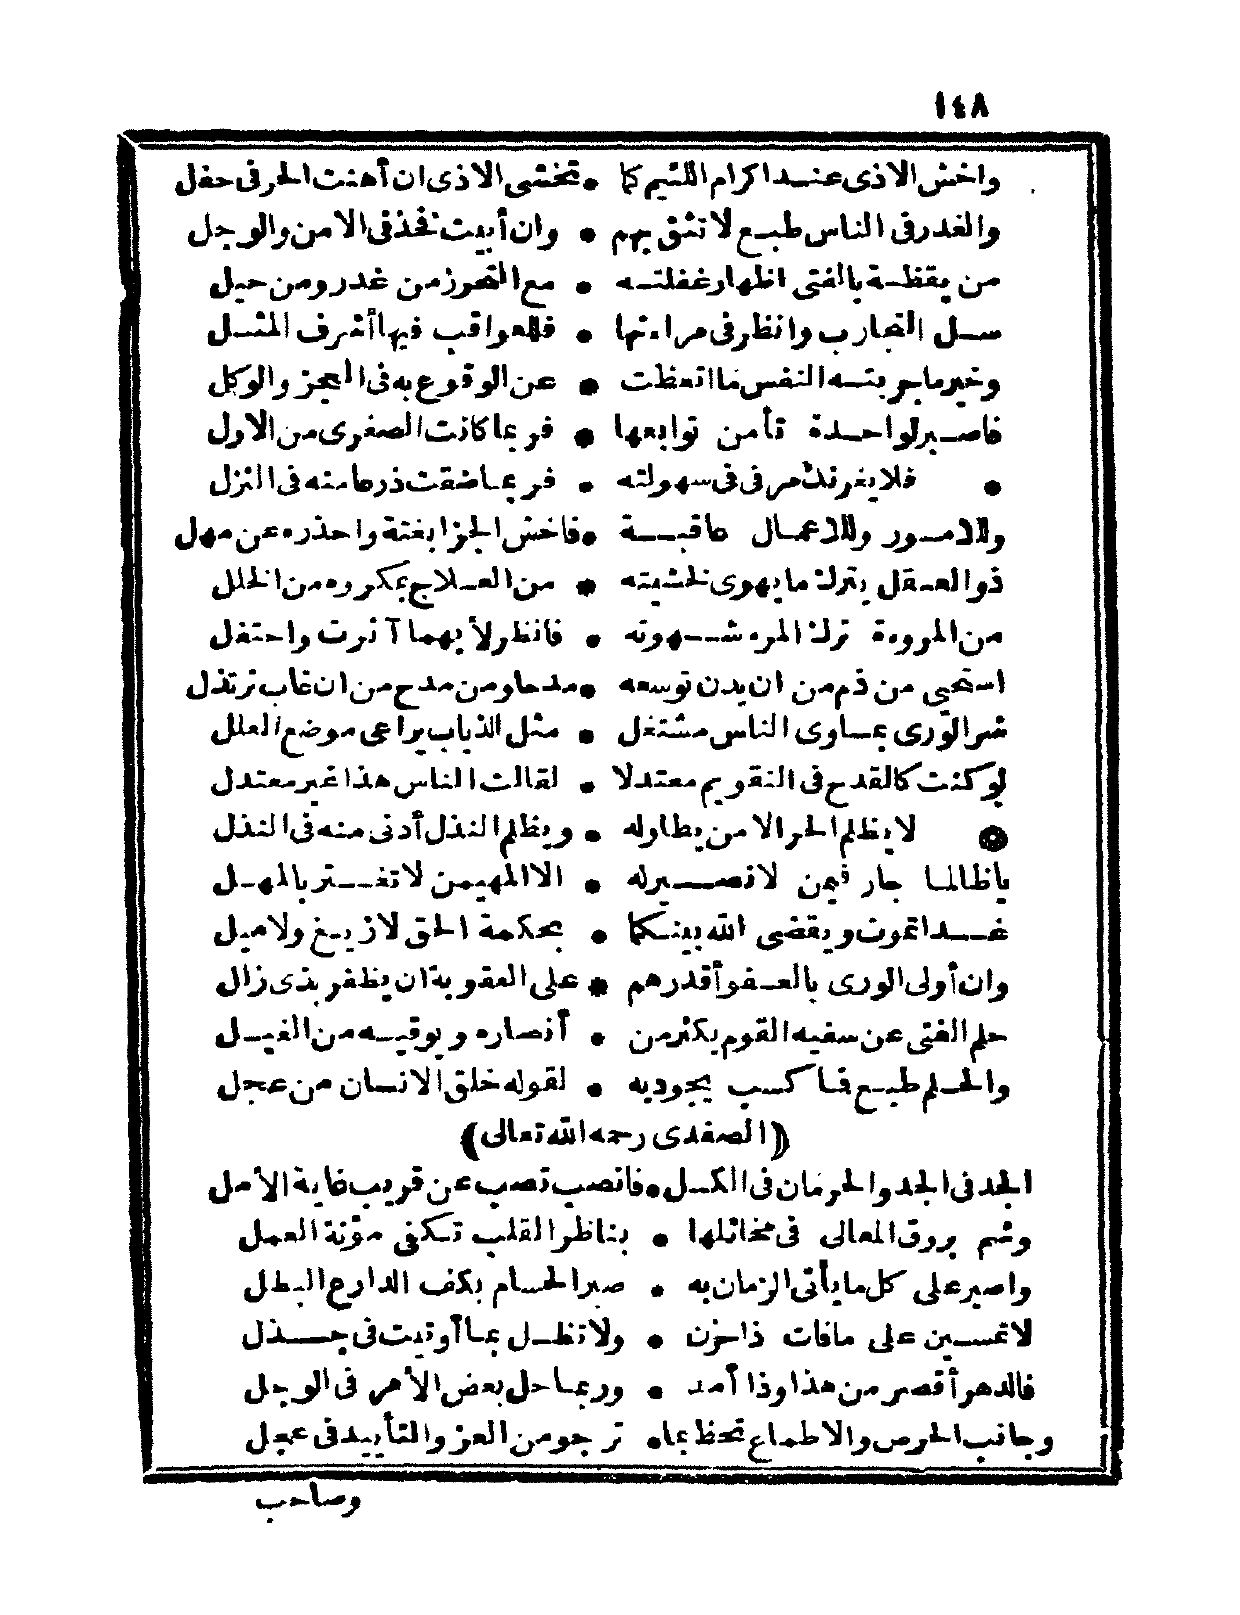 ١٤٨
واخش الاذى عند اكرام اللئيم كما • تخشى الاذى ان أهنت الحر فى حفل
والغدر فى الناس طبع لا تثق بهم • وان أبيت فخذ فى الامن والوجل
من يقظة بالفتى اظهار غفلته • مع التحرز من غدر ومن حيل
سل التجارب وانظر فى مراءتها • فللعواقب فيها أشرف المثل
وخير ما جربته النفس ما اتعظت • عن الوقوع به فى العجز والوكل
فاصبر لواحدة تأمن توابعها • فربما كانت الصغرى من الاول
• فلا يغرنك مرقى فى سهولته • فربما ضقت ذرعا منه فى النزل
وللامور وللاعمال عاقبة • فاخش الجزا بغتة واحذره عن مهل
ذو العقل يترك ما يهوى لخشيته • من العلاج بمكروه من الخلل
من المروءة ترك المرء شهوته • فانظر لأيهما آثرت واحتفل
استحيى من ذم من ان يدن توسعه • مدحا ومن مدح من ان غاب ترتذل
شر الورى بمساوى الناس مشتغل • مثل الذباب يراعى موضع العلل
لو كنت كالقدح فى التقويم معتدلا • لقالت الناس هذا غير معتدل
لا يظلم الحر الا من يطاوله • ويظلم النذل أدنى منه فى النذل
يا ظالما جار فيمن لا نصير له • الا المهيمن لا تغتر بالمهل
غدا تموت ويقضى الله بينكما • بحكمة الحق لا زيغ ولا ميل
وان أولى الورى بالعفو أقدرهم • على العقوبة ان يظفر بذى زال
حلم الفتى عن سفيه القوم يكثر من • أنصاره ويوقيه من الغيل
والحلم طبع فما كسب يجود به • لقوله خلق الانسان من عجل
(الصفدى رحمه الله تعالى)
الجد فى الجد والحرمان فى الكسل • فانصب تصب عن قريب غاية الأمل
وشم بروق المعالى فى مخائلها • بناظر القلب تكفى مؤنة العمل
واصبر على كل ما يأتى الزمان به • صبر الحسام بكف الدارع البطل
لا تمسين على مافات ذا حزن • ولا تظل بما أوتيت فى جذل
فالدهر أقصر من هذا وذا أمد • وربما حل بعض الأمر فى الوجل
وجانب الحرص والاطماع تحظ بما • ترجو من العز والتأييد فى عجل
وصاحب